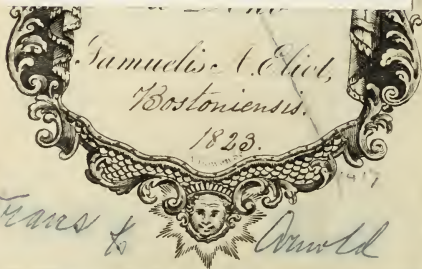 Samuelis A. Eliot,
Bostoniensis.
1823.
Trans to Arnold